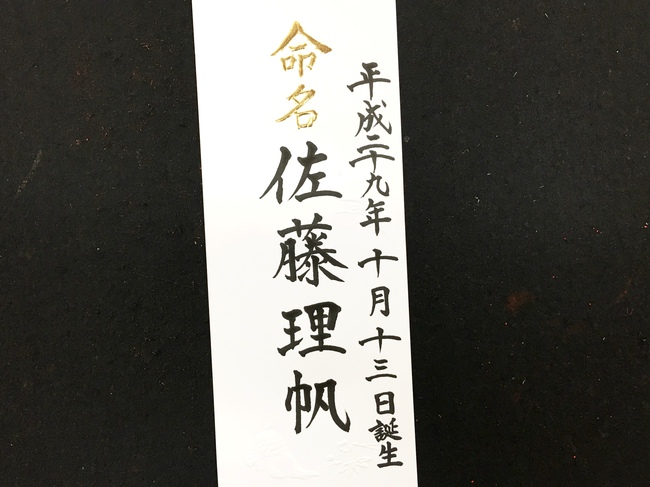 平成二十九年十月十三日誕生
命名
佐藤理帆